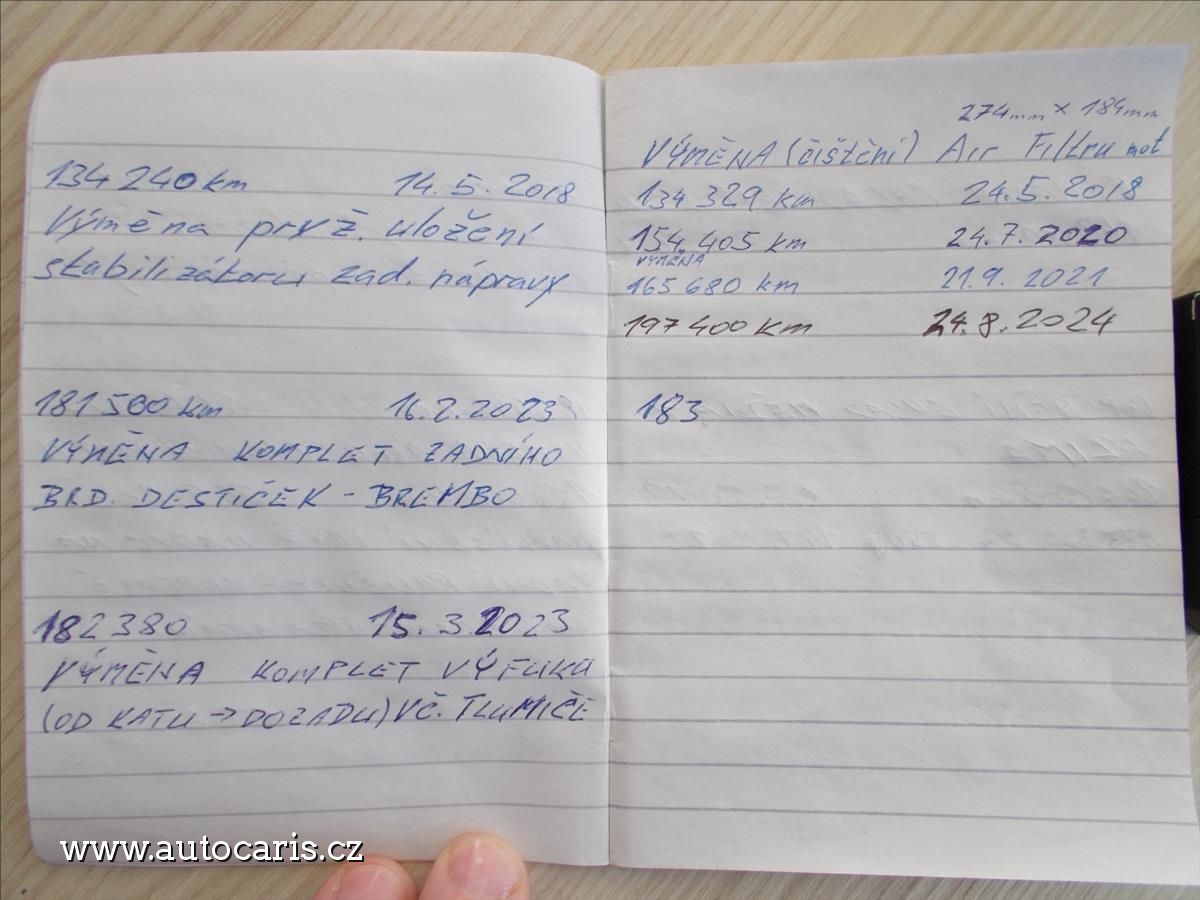 134 240 km 14.5.2018
Výměna pryž. uložení
stabilizátoru zad. nápravy
181 500 km 16.2.2023
VÝMĚNA KOMPLET ZADNÍHO
BRD. DESTIČEK - BREMBO
182 380 15.3.2023
VÝMĚNA KOMPLET VÝFUKU
(OD KATU → DOZADU) VČ. TLUMIČE
274mm × 184mm
VÝMĚNA (čištění) Air Filtru mot
134 329 km 24.5.2018
154 405 km 24.7.2020
VÝMĚNA
165 680 km 21.9.2021
197 400 km 24.8.2024
183
www.autocaris.cz